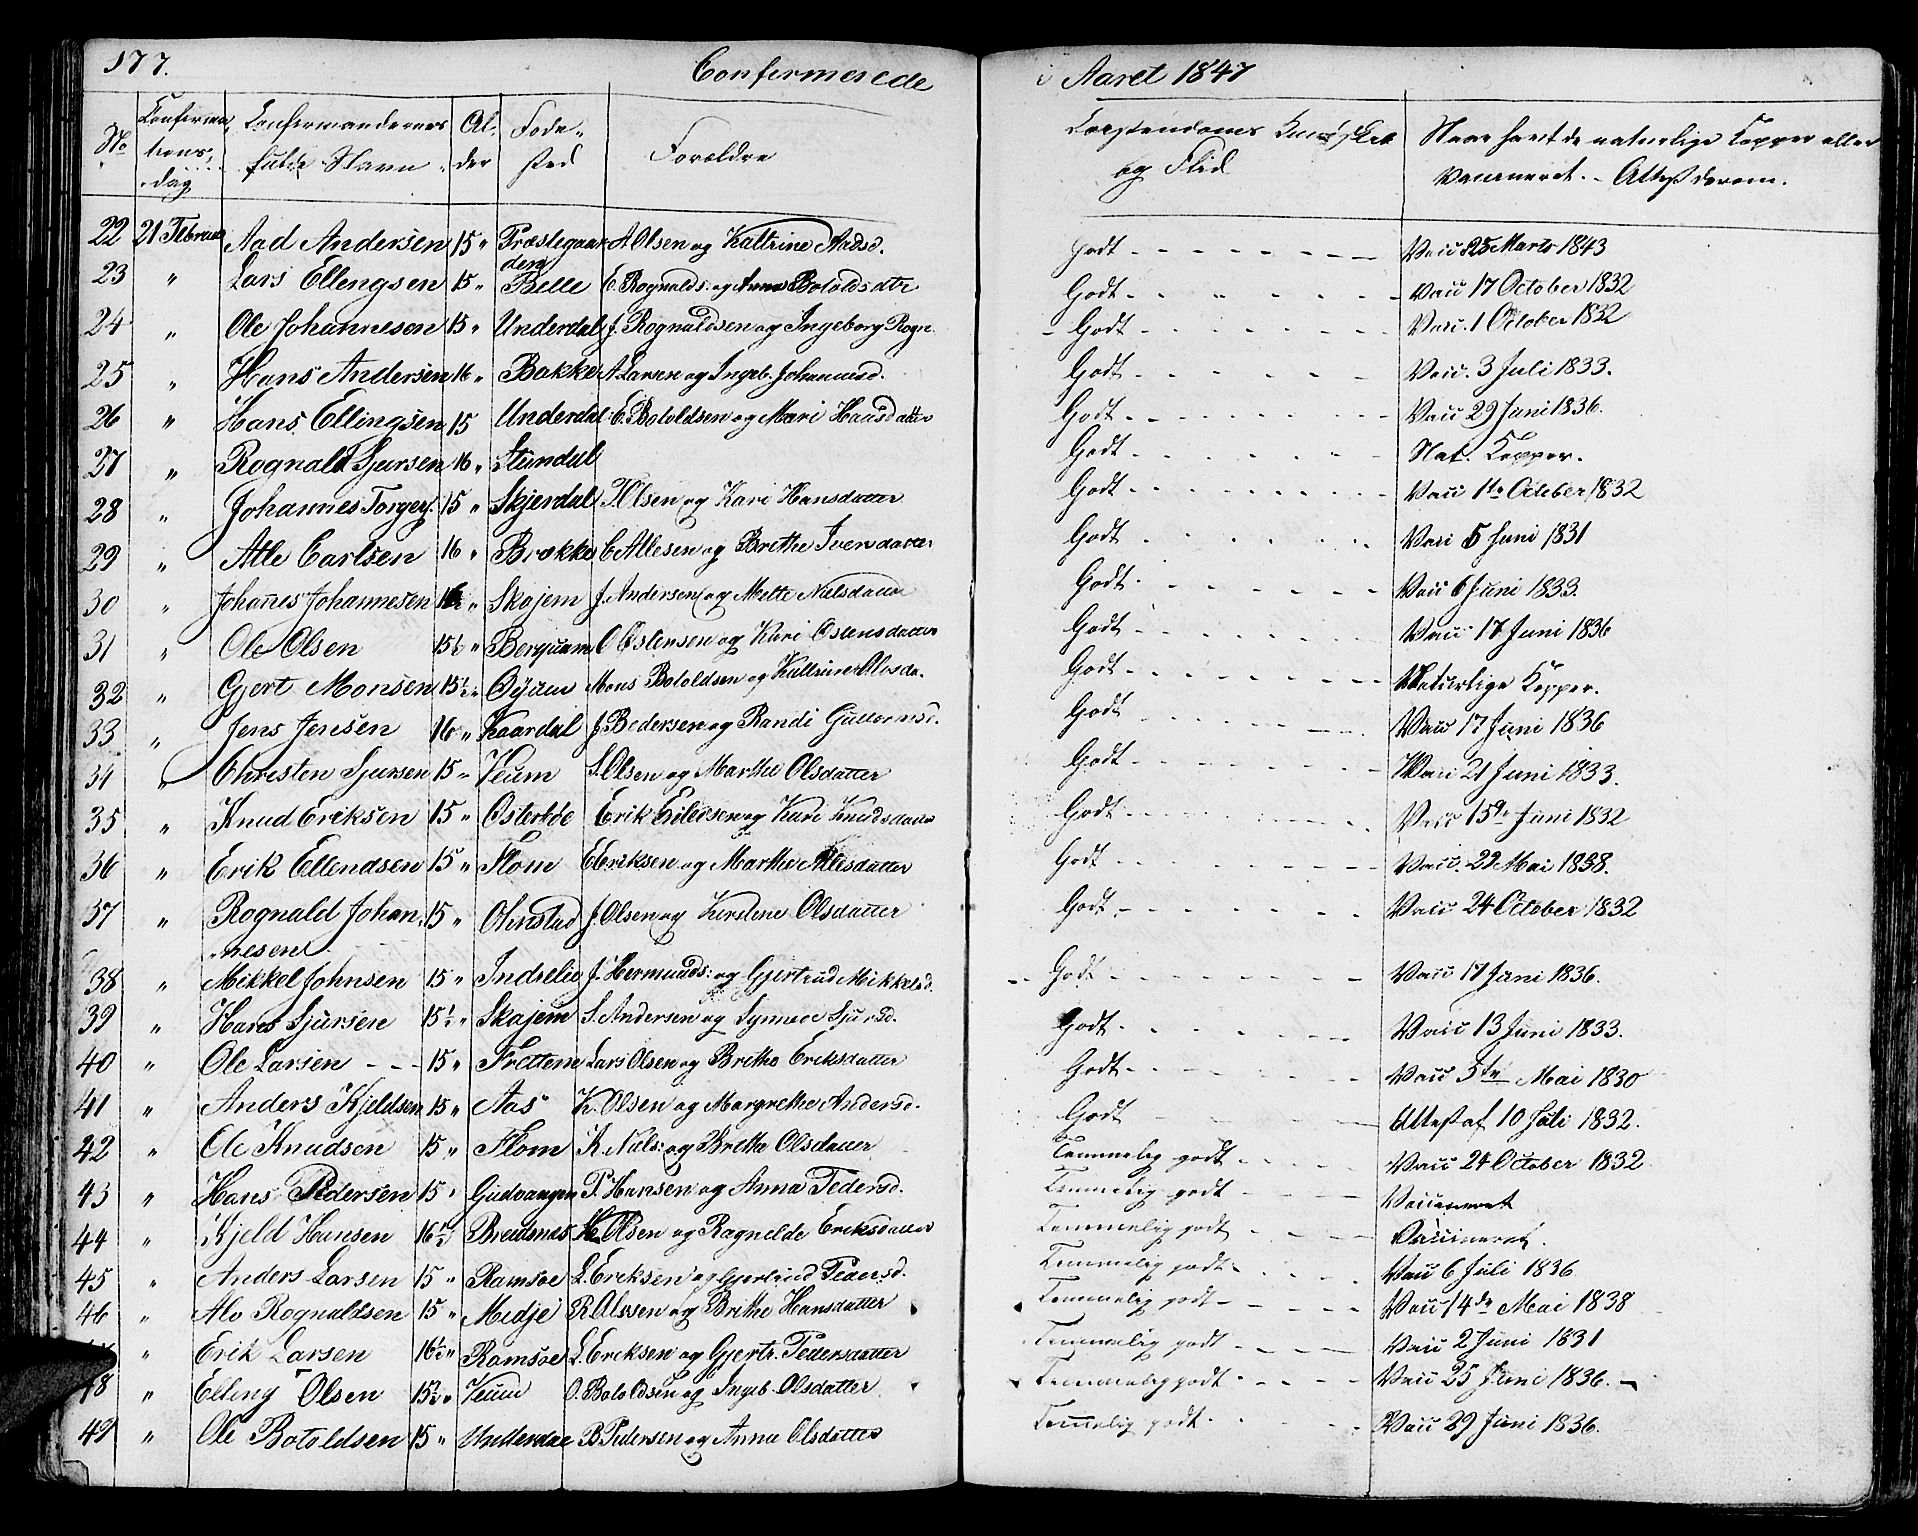 177. Confirmerede i Aaret 1847
No Confirma- Confirmandernes Al- Føde- Forældre Christendoms Kundskab Naar havt de naturlige Kopper eller
tions- fulde Navn der sted og Flid Vaccineret. Attest derom.
dag
22 21 Februar Aad Andersen 15 " Præstegaar A Olsen og Kattrine Aadsd. Godt Vacc 25 Marts 1843
den
23 " Lars Ellengsen 15 " Belle E. Rognalds: og Anna Botoldsdtr Godt Vacc 17 October 1832
24 " Ole Johannesen 15 " Underdal J. Rognaldsen og Ingeborg Rogn. Godt Vacc. 1 October 1832
25 " Hans Andersen 16 " Bakke A Larsen og Ingeb. Johannesd. Godt Vacc. 3 Juli 1833.
26 " Hans Ellingsen 15 Underdal E. Botoldsen og Mari Hansdatter Godt Vacc 29 Juni 1836.
27 " Rognald Sjursen 16 " Stundal Godt Nat. Kopper.
28 " Johannes Torgey. 15 " Skjerdal T Olsen og Kari Hansdatter Godt Vacc 1te October 1832
29 " Atle Carlsen 16 " Brekke C Atlesen og Brithe Iversdatter Godt Vacc 5 Juni 1831
30 " Johañes Johannesen " Skajem J. Andersen og Mette Nielsdatter Godt Vacc 6 Juni 1833.
31 " Ole Olsen 15½ " Berquam O Ostensen og Kari Ostensdatter Godt Vacc 17 Juni 1836
32 " Gjert Monsen 15½ " Oÿum Mons Botoldsen og Kattrine Olsda. Godt Naturlige Kopper.
33 " Jens Jensen 16 " Kaardal J. Pedersen og Randi Guttormsd. Godt Vacc 17 Juni 1836
34 " Christen Sjursen 15 " Veum S. Olsen og Marthe Olsdatter Godt Vacc 21 Juni 1833.
35 " Knud Eriksen 15 " Osterbøe Erik Eilersen og Kari Knudsdatter Godt Vacc 15de Juni 1832
36 " Erik Ellendsen 15 " Flom E Eriksen og Marthe Atlesdatter Godt Vacc. 22 Mai 1838.
37 " Rognald Johan- 15 " Ohnstad J. Olsen og Kirstene Olsdatter Godt Vacc 24 October 1832
nesen
38 " Mikkel Johnsen 15 " Indrelie J. Hermunds: og Gjertrud Mikkelsd. Godt Vacc 17 Juni 1836.
39 " Hans Sjursen 15½ " Skajem S. Andersen og Synneve Sjursd. Godt Vacc 13 Juni 1833.
40 " Ole Larsen 15 " Frettem Lars Olsen og Brithe Eriksdatter Godt Vacc 5te Mai 1830
41 " Anders Kjeldsen 15 " Aas K. Olsen og Margrethe Andersd. Godt Attest af 10 Juli 1832.
42 " Ole Knudsen 15 " Flom K. Niels: og Brithe Olsdatter Temmelig godt Vacc 24 October 1832
43 " Hans Pedersen 15 " Gudvangen P. Hansen og Anna Pedersd. Temmelig godt Vaccineret
44 " Kjeld Hansen 16½ Breidsnæs H. Olsen og Ragnelde Eriksdatter Temmelig godt Vaccineret.
45 " Anders Larsen 15 " Ramsøe L. Eriksen og Gjertrud Pedersd. Temmelig godt Vacc 6 Juli 1836
46 " Alv Rognaldsen 15 " Midje R Alvsen og Brithe Hansdatter Temmelig godt Vacc 14de Mai 1838
" Erik Larsen 16½ " Ramsøe L. Eriksen og Gjertr. Pedersdatter Temmelig godt Vacc 2 Juni 1831
48 " Elling Olsen 15½ " Veum O. Botoldsen og Ingeb Olsdatter Temmelig godt Vacc 25 Juni 1836.
49 " Ole Botoldsen 15 " Underdal B Pedersen og Anna Olsdatter Temmelig godt Vacc 29 Juni 1836.